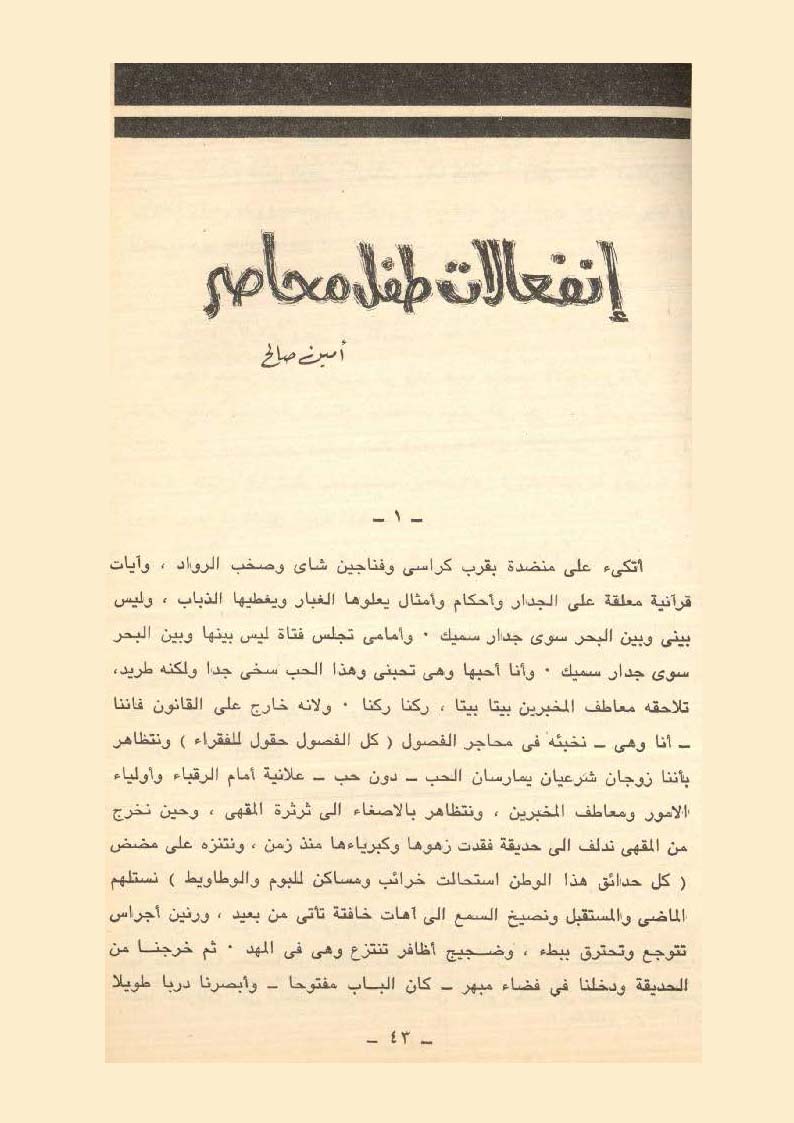 إنفعالات طفل محاصر
أمين صالح
ــ ١ ــ
أتكىء على منضدة بقرب كراسى وفناجين شاى وصخب الرواد ، وآيات
قرآنية معلقة على الجدار وأحكام وأمثال يعلوها الغبار ويغطيها الذباب ، وليس
بينى وبين البحر سوى جدار سميك ٠ وأمامى تجلس فتاة ليس بينها وبين البحر
سوى جدار سميك ٠ وأنا أحبها وهى تحبنى وهذا الحب سخى جدا ولكنه طريد،
تلاحقه معاطف المخبرين بيتا بيتا ، ركنا ركنا ٠ ولانه خارج على القانون فاننا
ــ أنا وهى ــ نخبئه فى محاجر الفصول ( كل الفصول حقول للفقراء ) ونتظاهر
بأننا زوجان شرعيان يمارسان الحب ــ دون حب ــ علانية أمام الرقباء وأولياء
الامور ومعاطف المخبرين ، ونتظاهر بالاصغاء الى ثرثرة المقهى ، وحين نخرج
من المقهى ندلف الى حديقة فقدت زهوها وكبرياءها منذ زمن ، ونتنزه على مضض
( كل حدائق هذا الوطن استحالت خرائب ومساكن للبوم والوطاويط ) نستلهم
الماضى والمستقبل ونصيخ السمع الى آهات خافتة تأتى من بعيد ، ورنين أجراس
تتوجع وتحترق ببطء ، وضجيج أظافر تنتزع وهى فى المهد ٠ ثم خرجنا من
الحديقة ودخلنا في فضاء مبهر ــ كان الباب مفتوحا ــ وأبصرنا دربا طويلا
ــ ٤٣ ــ